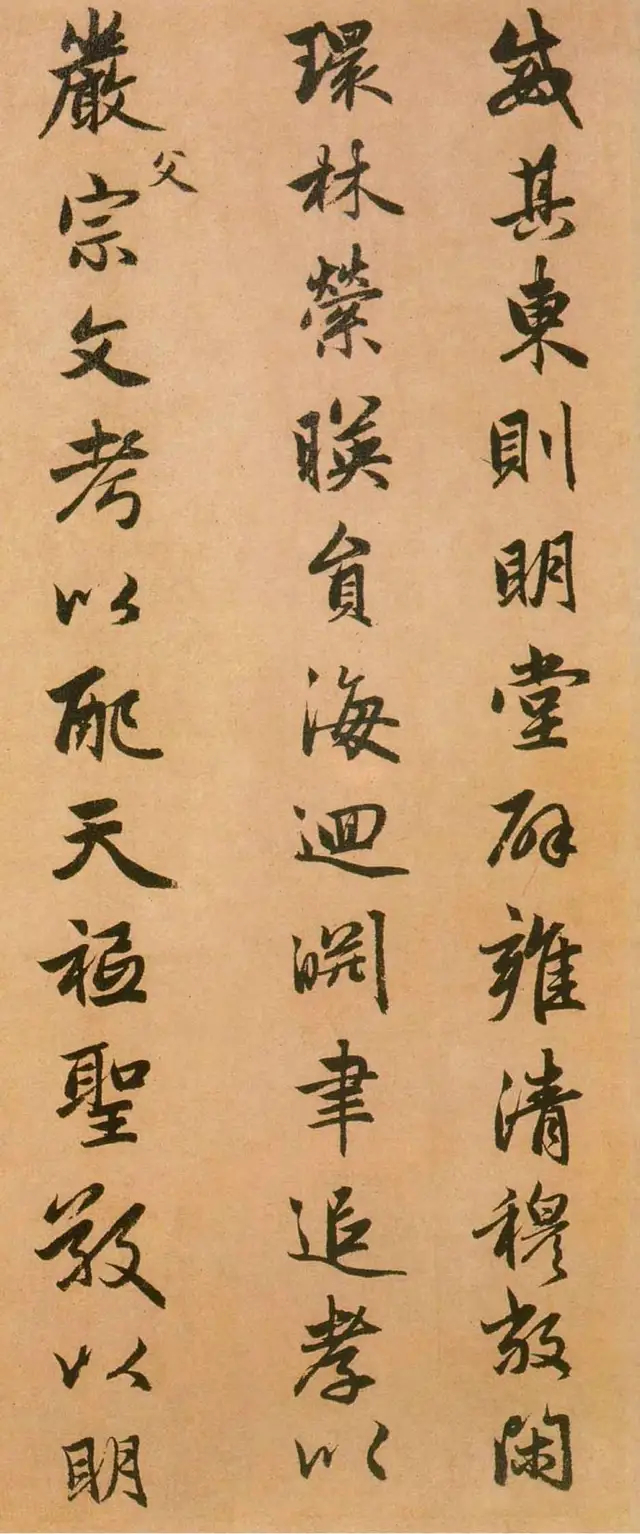 威其東則明堂辟雍清穆敞閑
環林縈暎員海迴淵聿追孝以
嚴父宗文考以配天祗聖敬以明